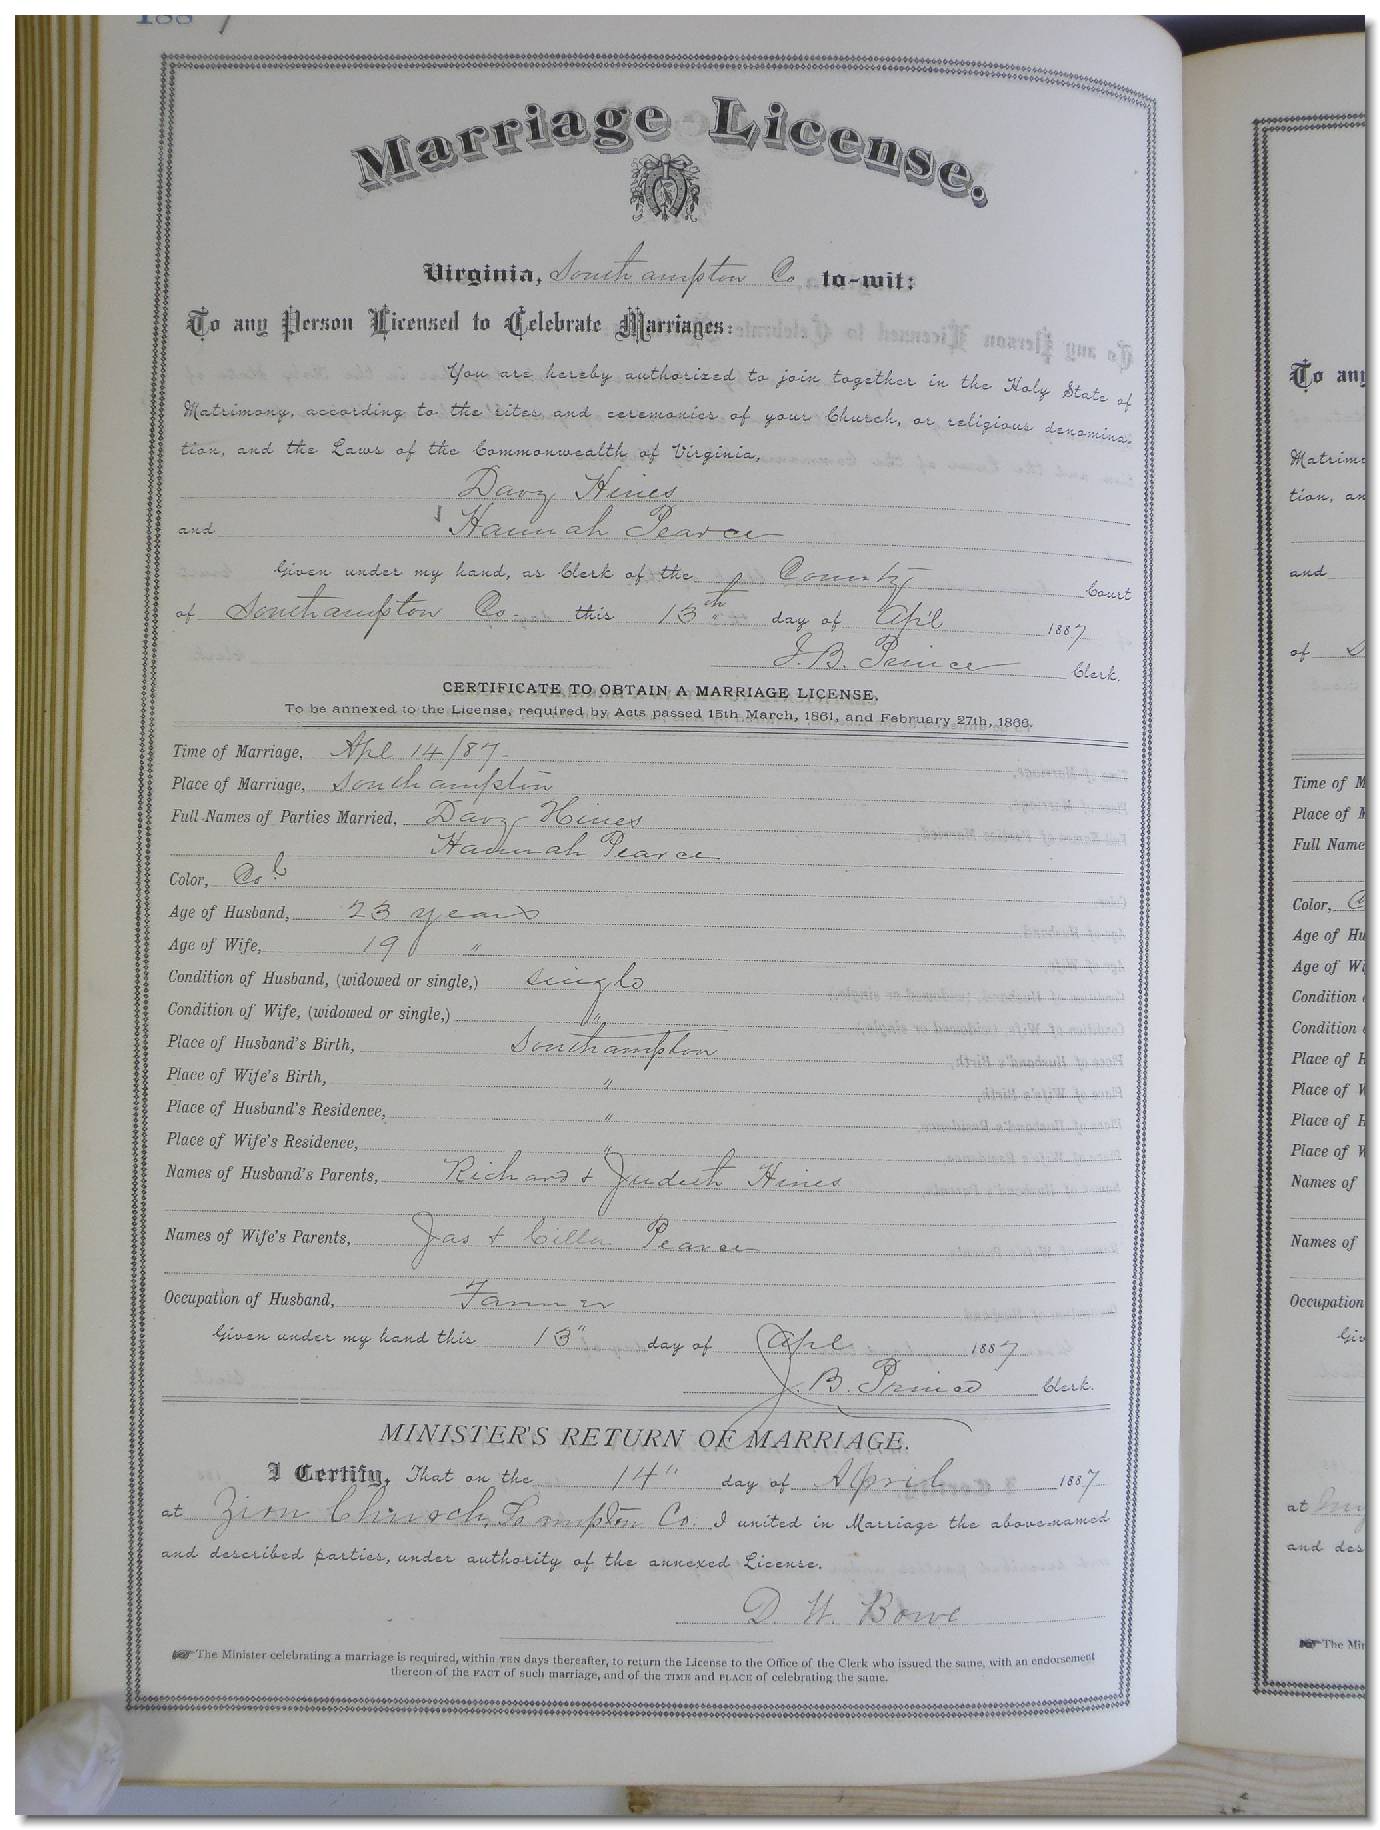 1887
Marriage License.
Virginia, Southampton Co to-wit:
To any Person Licensed to Celebrate Marriages:
You are hereby authorized to join together in the Holy State of
Matrimony, according to the rites and ceremonies of your Church, or religious denomina-
tion, and the Laws of the Commonwealth of Virginia,
Davy Hines
and Hannah Pearce
Given under my hand, as Clerk of the County Court
of Southampton Co. this 13th day of Apl 1887
J. B. Prince Clerk.
CERTIFICATE TO OBTAIN A MARRIAGE LICENSE.
To be annexed to the License, required by Acts passed 15th March, 1861, and February 27th, 1866.
Time of Marriage, Apl 14/87.
Place of Marriage, Southampton
Full Names of Parties Married, Davy Hines
Hannah Pearce
Color, Col
Age of Husband, 23 years
Age of Wife, 19 "
Condition of Husband, (widowed or single,) single
Condition of Wife, (widowed or single,) "
Place of Husband's Birth, Southampton
Place of Wife's Birth, "
Place of Husband's Residence, "
Place of Wife's Residence, "
Names of Husband's Parents, Richard & Judeth Hines
Names of Wife's Parents, Jas & Cilla Pearce
Occupation of Husband, Farmer
Given under my hand this 13" day of Apl 1887
J. B. Prince Clerk.
MINISTER'S RETURN OF MARRIAGE.
I Certify, That on the 14" day of April 1887
at Zion Church, So ampton Co. I united in Marriage the above-named
and described parties, under authority of the annexed License.
D. W. Bowe
The Minister celebrating a marriage is required, within TEN days thereafter, to return the License to the Office of the Clerk who issued the same, with an endorsement
thereon of the FACT of such marriage, and of the TIME and PLACE of celebrating the same.
To any
Matrimo
tion, an
and
of
Time of M
Place of M
Full Name
Color,
Age of Hu
Age of Wi
Condition
Condition
Place of H
Place of W
Place of H
Place of W
Names of
Names of
Occupation
Giv
at
and des
The Min